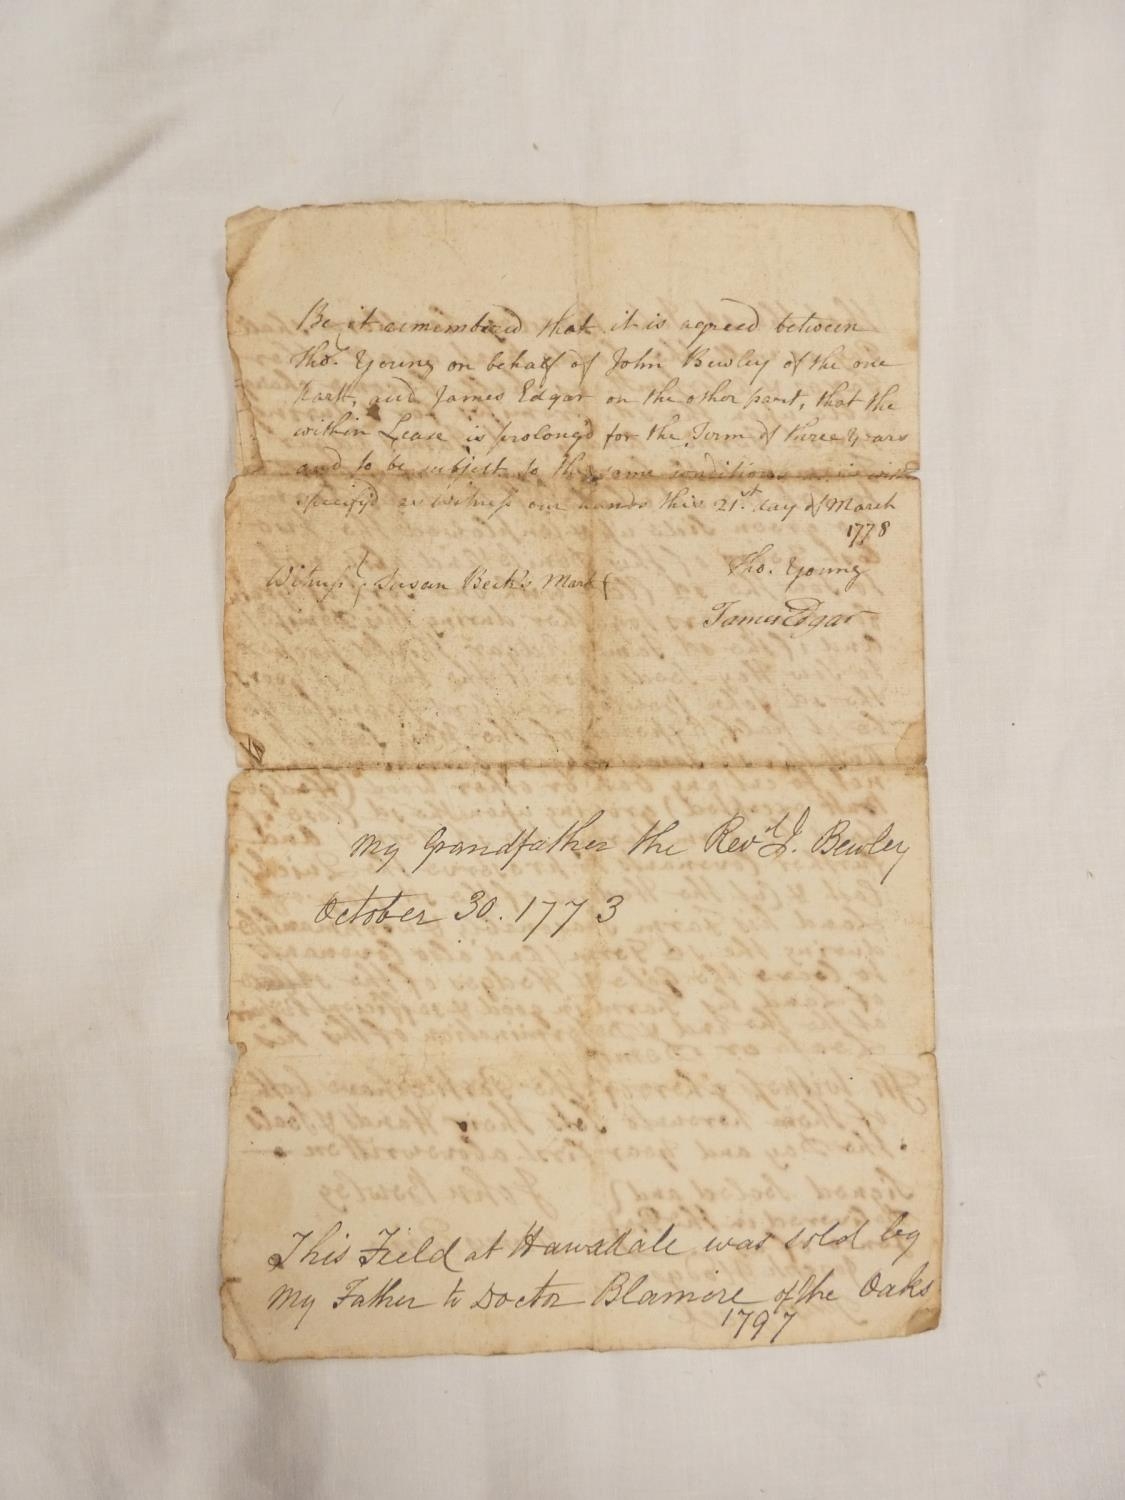 Be it remembered that it is agreed between
Tho.s Young on behalf of John Bewley of the one
part, and James Edgar on the other part, that the
within Lease is prolong'd for the Term of three years
and to be subject to the same conditions as is with
specify'd as witness our hands this 21st day of March
1778
Tho. Young
Witness } Susan Beck's Mark
James Edgar
My Grandfather the Revd J. Bewley
October 30. 1773
This Field at Hawksdale was sold by
my Father to Doctor Blamire of the Oaks
1797